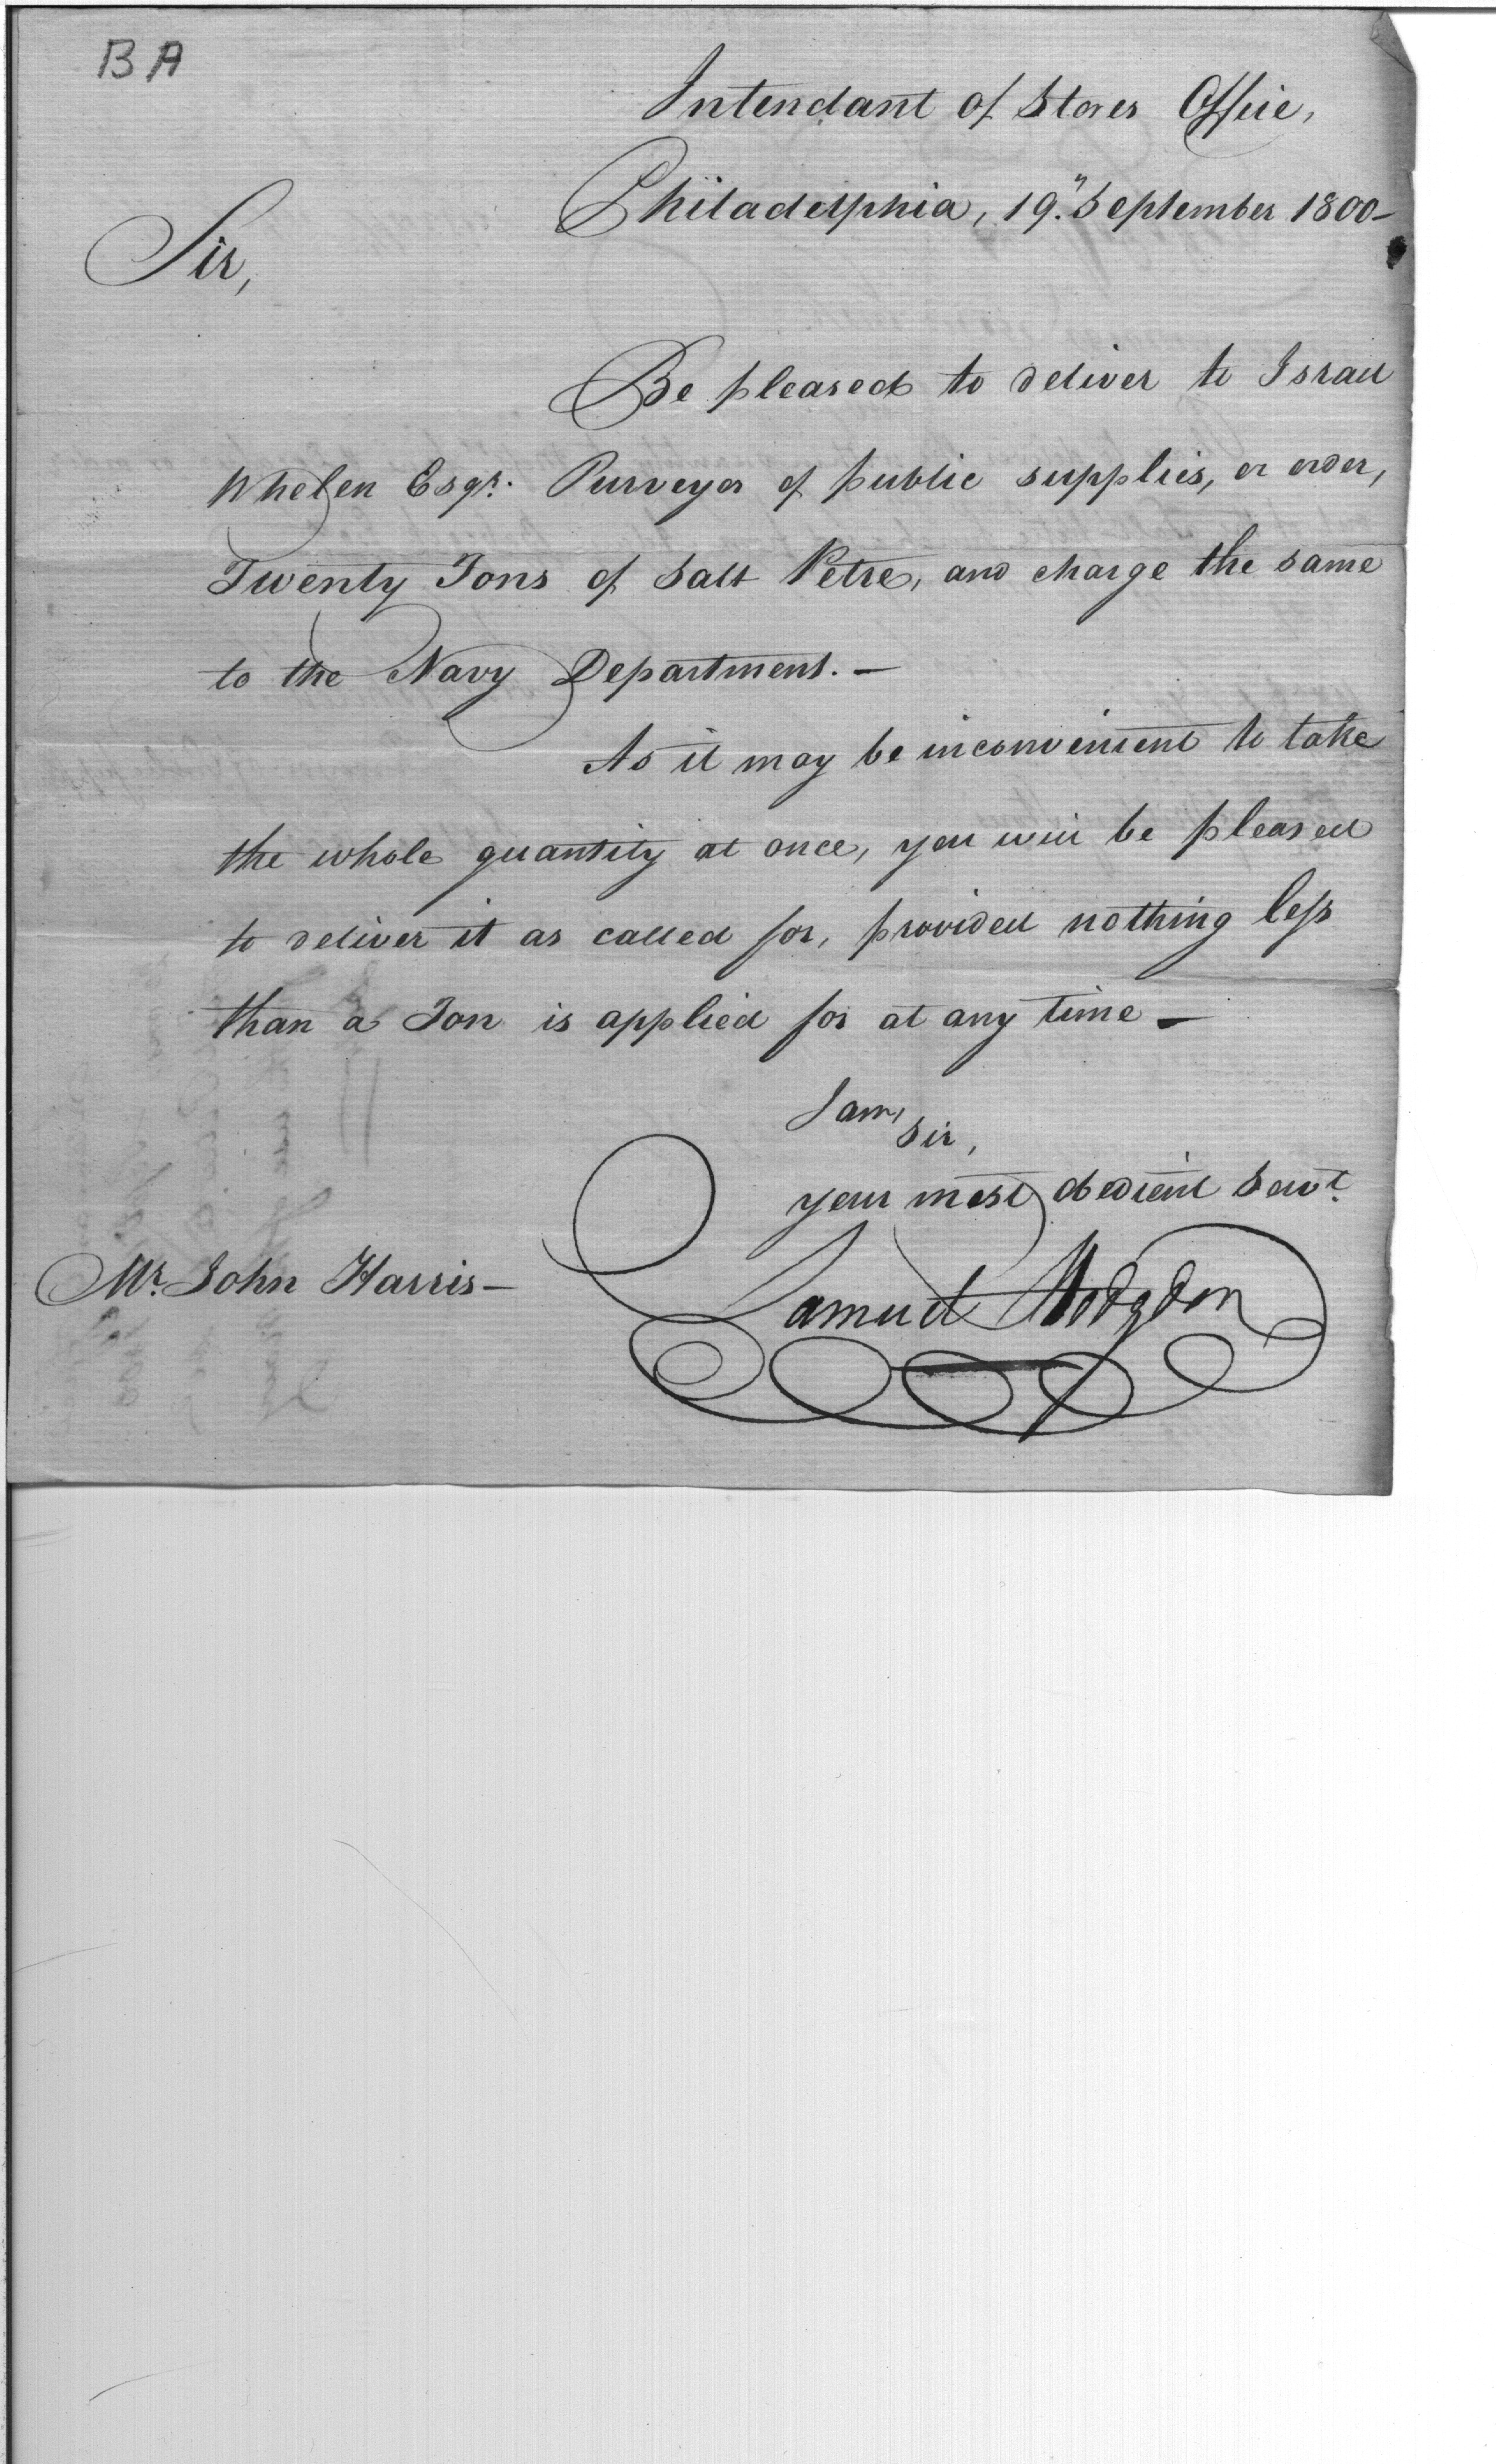 BA
Intendant of Stores Office,
Philadelphia, 19." September 1800-
Sir,
Be pleased to deliver to Israel
Whelen Esqr. Purveyor of public supplies, or order,
Twenty Tons of Salt Petre, and charge the same
to the Navy Department. —
As it may be inconvenient to take
the whole quantity at once, you will be pleased
to deliver it as called for, provided nothing less
than a Ton is applied for at any time —
I am,
Sir,
your most obedient Servt.
Samuel Hodgdon
Mr. John Harris —